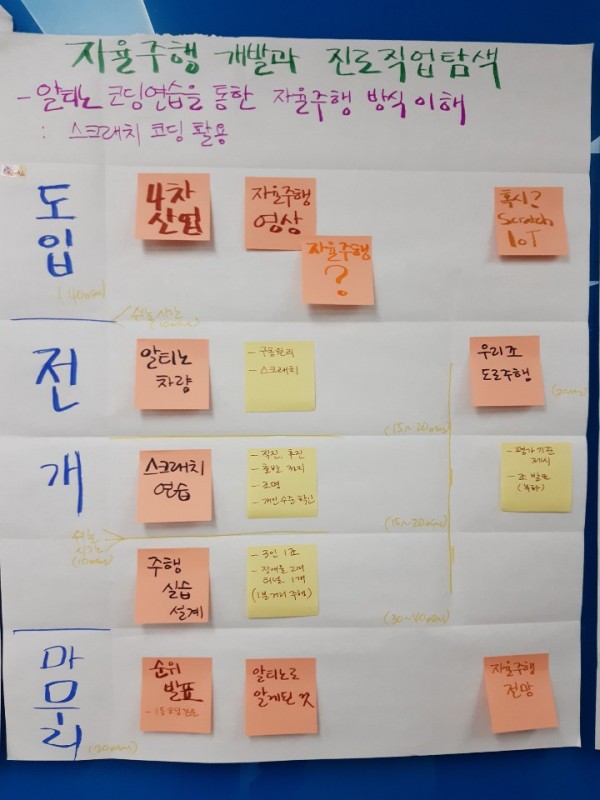 자율주행 개발과 진로직업탐색
- 알티노 코딩연습을 통한 자율주행 방식 이해
: 스크래치 코딩 활용
도입
(40min)
4차
산업
자율주행
영상
자율주행
?
혹시?
Scratch
IoT
쉬는시간
(10min)
전개
알티노
차량
- 구동원리
- 스크래치
(15~20min)
우리조
도로주행
(20min)
스크래치
연습
- 직진, 후진
- 조명
- 개인 수준 확인
(15~20min)
- 평가기준
제시
- 조 발표
쉬는
시간
(10min)
주행
실습
설계
- 3인 1조
- 장애물 2개
터널 1개
(30~40min)
마무리
(20min)
순위
발표
알티노로
알게된 것
자율주행
전망